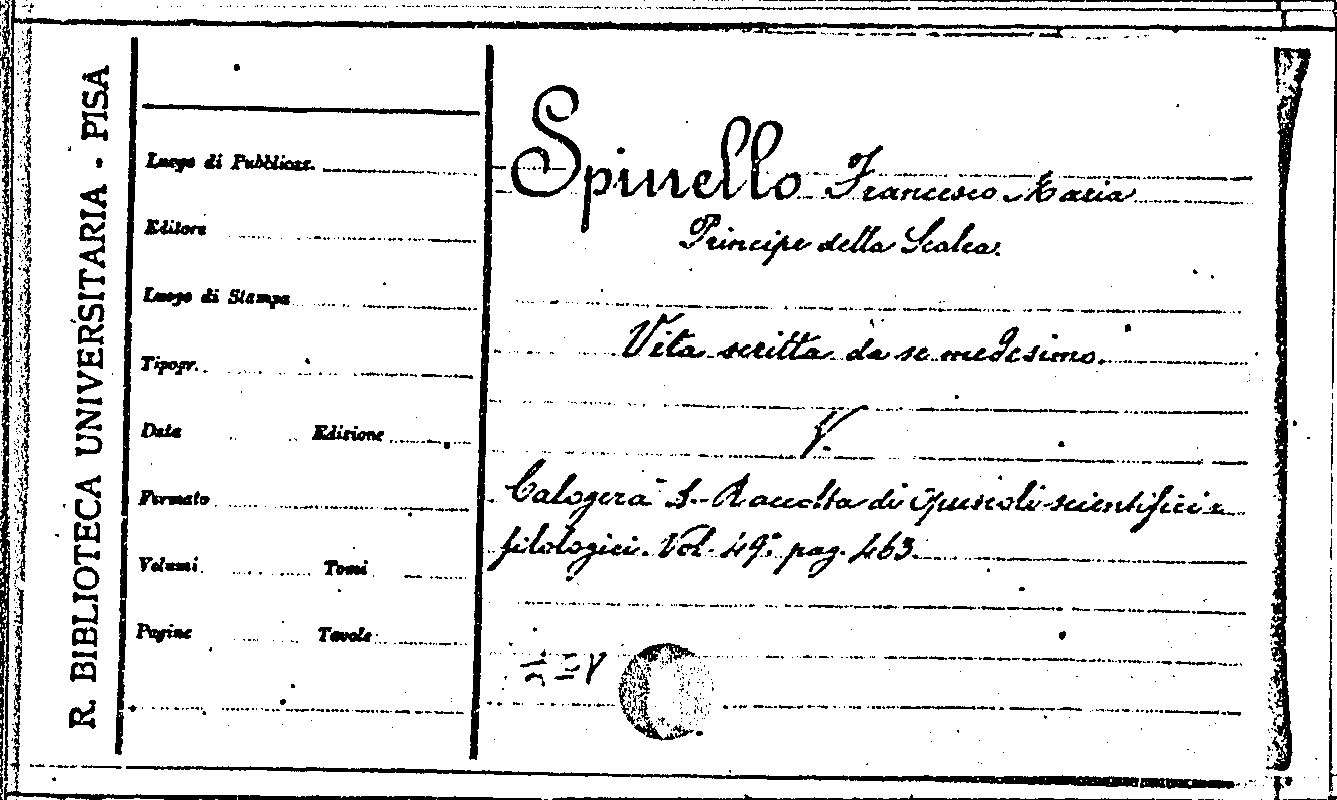 R. BIBLIOTECA UNIVERSITARIA - PISA
Luogo di Pubblicaz.
Editore
Luogo di Stampa
Tipogr.
Data Edizione
Formato
Volumi Tomi
Pagine Tavole
Spinello Francesco Maria
Principe della Scalea.
Vita scritta da se medesimo.
V.
Calogerà - Raccolta di Opuscoli scientifici e
filologici. Vol. 49° pag. 463.